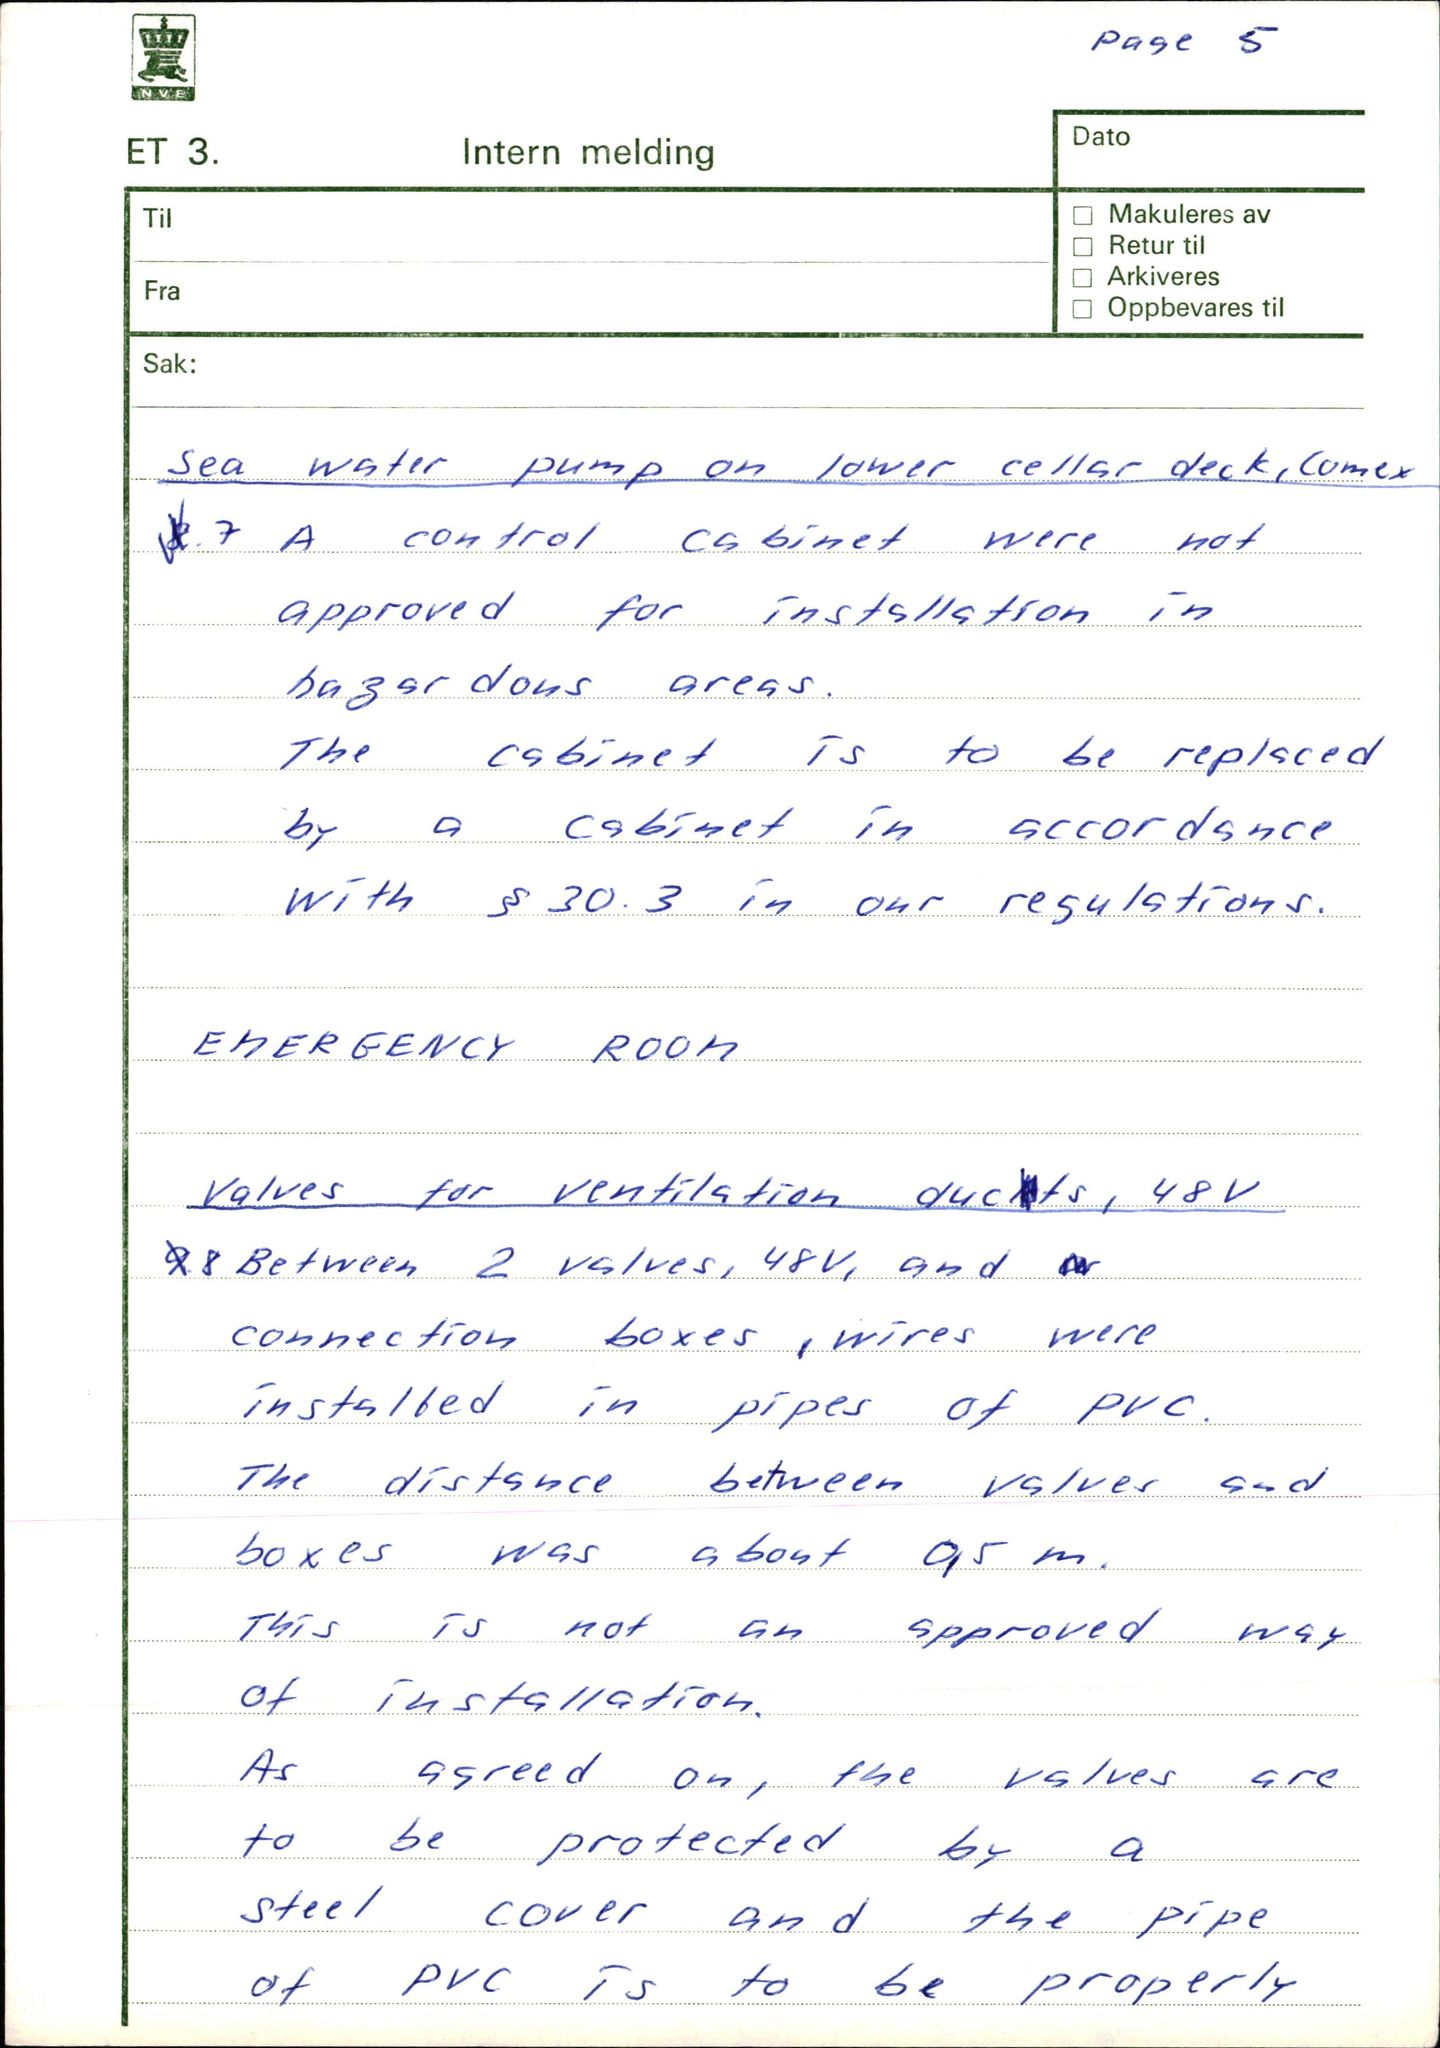 Page 5
NVE
ET 3. Intern melding
Dato
Til
Makuleres av
Retur til
Arkiveres
Oppbevares til
Fra
Sak:
Sea water pump on lower cellar deck, Comex
7 A control cabinet were not
approved for installation in
hazardous areas.
The cabinet is to be replaced
by a cabinet in accordance
with § 30.3 in our regulations.
EMERGENCY ROOM
Valves for ventilation ducts, 48V
8 Between 2 valves, 48V, and
connection boxes, wires were
installed in pipes of PVC.
The distance between valves and
boxes was about 0,5 m.
This is not an approved way
of installation.
As agreed on, the valves are
to be protected by a
steel cover and the pipe
of PVC is to be properly